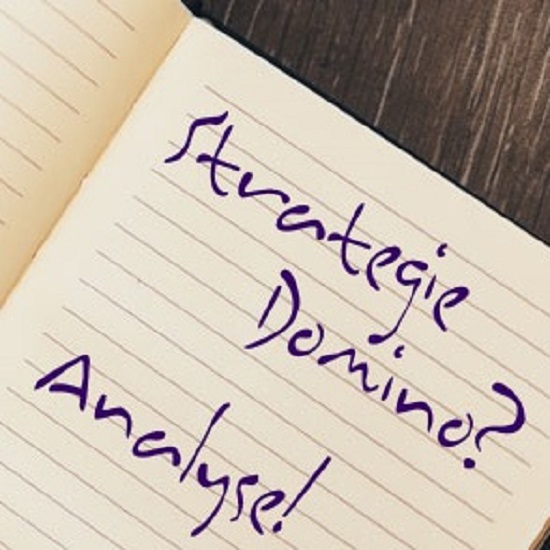 Strategie
Domino?
Analyse!